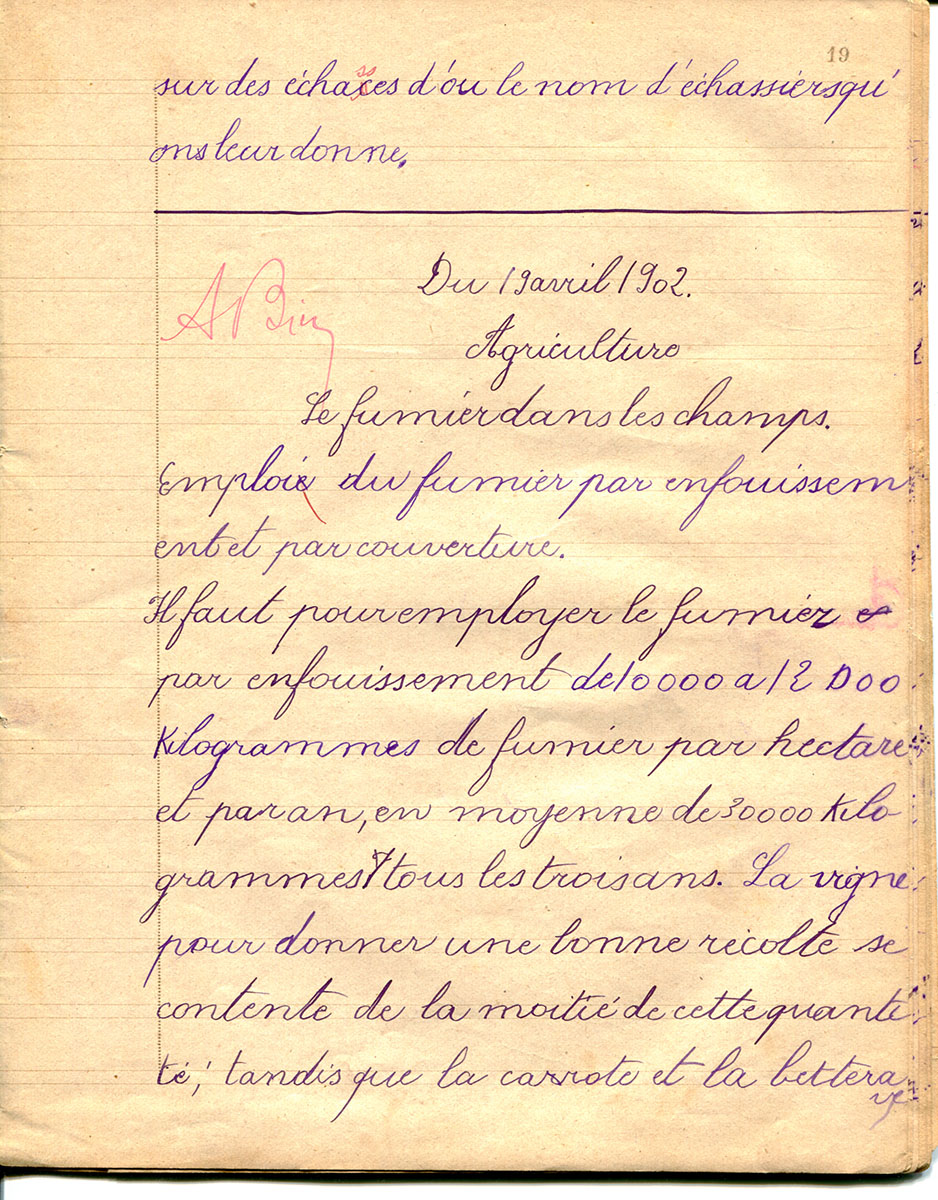 19
sur des échasses d'ou le nom d'échassiers qu'
ons leur donne.
Du 19 avril 1902.
A Bien
Agriculture
Le fumier dans les champs.
Emploie du fumier par enfouissem
ent et par couverture.
Il faut pour employer le fumier
par enfouissement de 10000 a 12000
Kilogrammes de fumier par hectare
et par an, en moyenne de 30000 Kilo
grammes tous les trois ans. La vigne
pour donner une bonne récolte se
contente de la moitié de cette quanti
té; tandis que la carrote et la bettera
ve